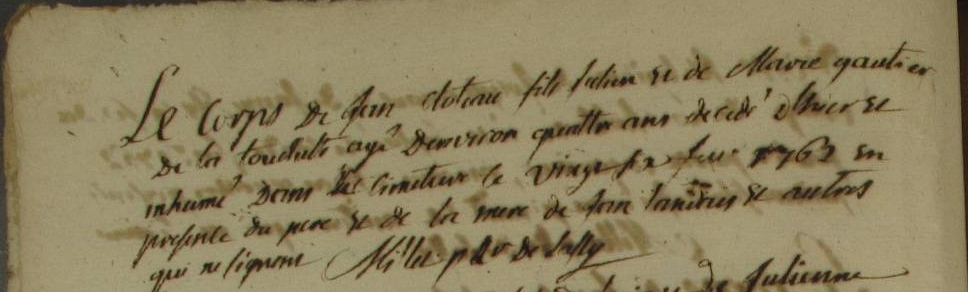 Le Corps De Jean Cloteau fils Julien et de Marie gautier
de la touchette agé Denviron quattre ans decedé d'hier et
inhumé Dans le Cimetiere le vingt six 1763 en
presence du pere et de la mere de Jean et autres
qui ne signent Milet de Sally
de Julienne